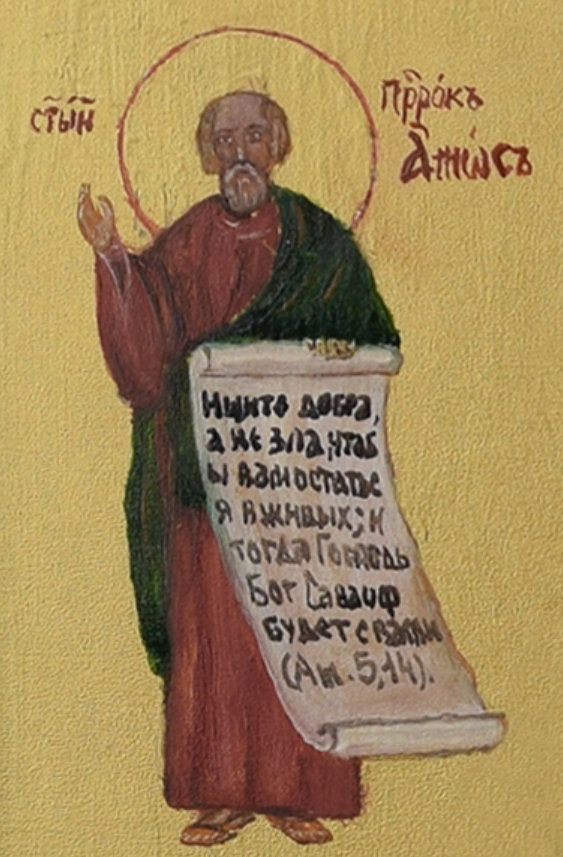 ст҃ы́й
прⷪ҇ро́къ
А҆мѡ́съ
Ищите добра,
а не зла, чтоб
ы вам остатьс
я в живых; и
тогда Господь
Бог Саваоф
будет с вами
(Ам. 5,14).